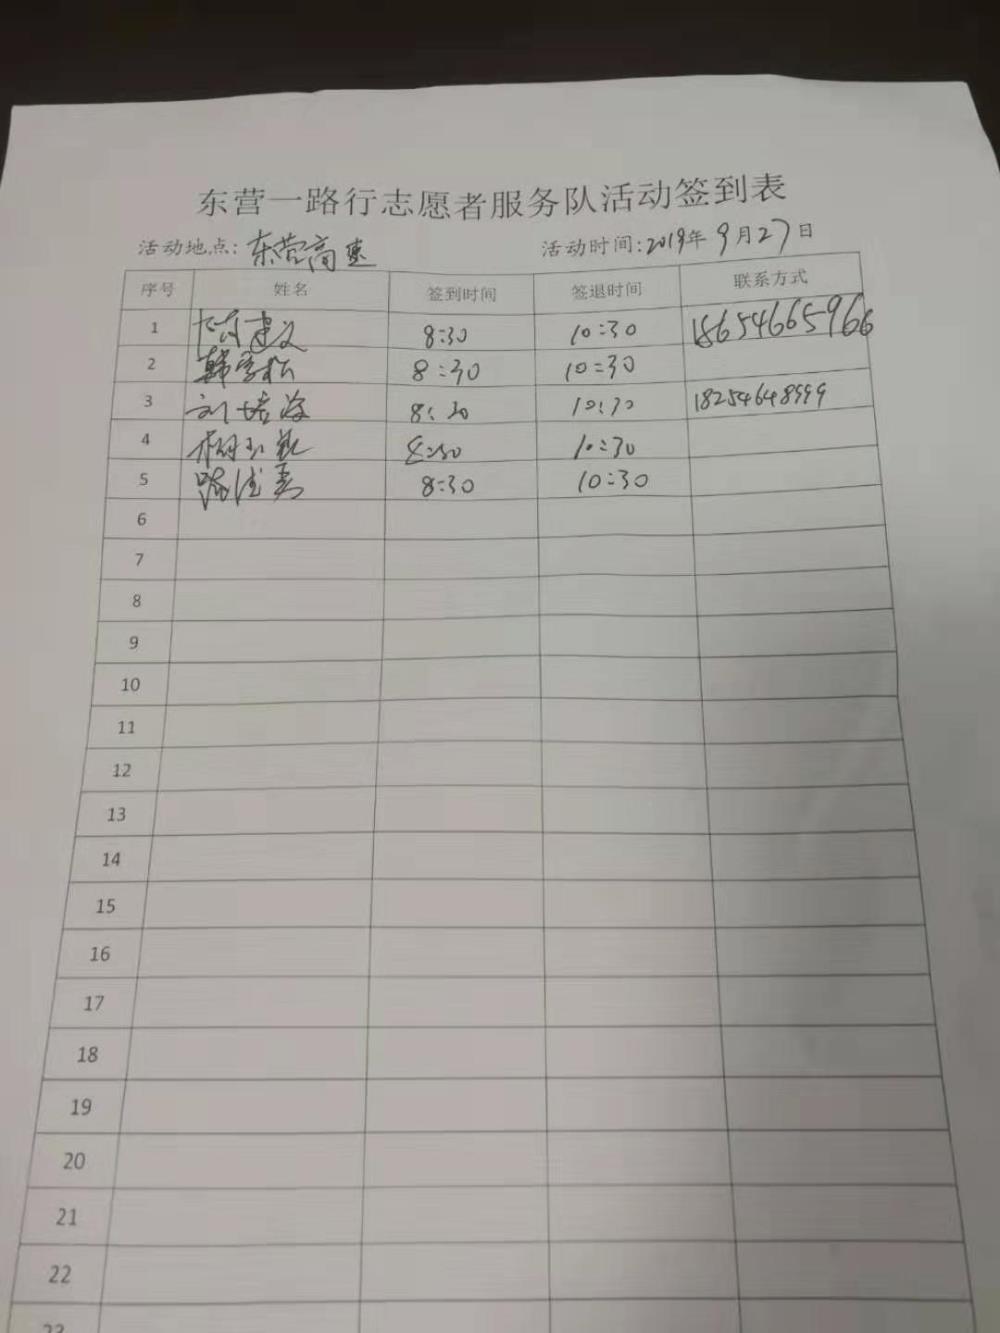 东营一路行志愿者服务队活动签到表
活动地点: 东营高速 活动时间: 2019年9月27日
序号 姓名 签到时间 签退时间 联系方式
1 8:30 10:30 18654665966
2 韩学松 8:30 10:30
3 刘培海 8:30 10:30 18254648999
4 8:30 10:30
5 8:30 10:30
6
7
8
9
10
11
12
13
14
15
16
17
18
19
20
21
22
23